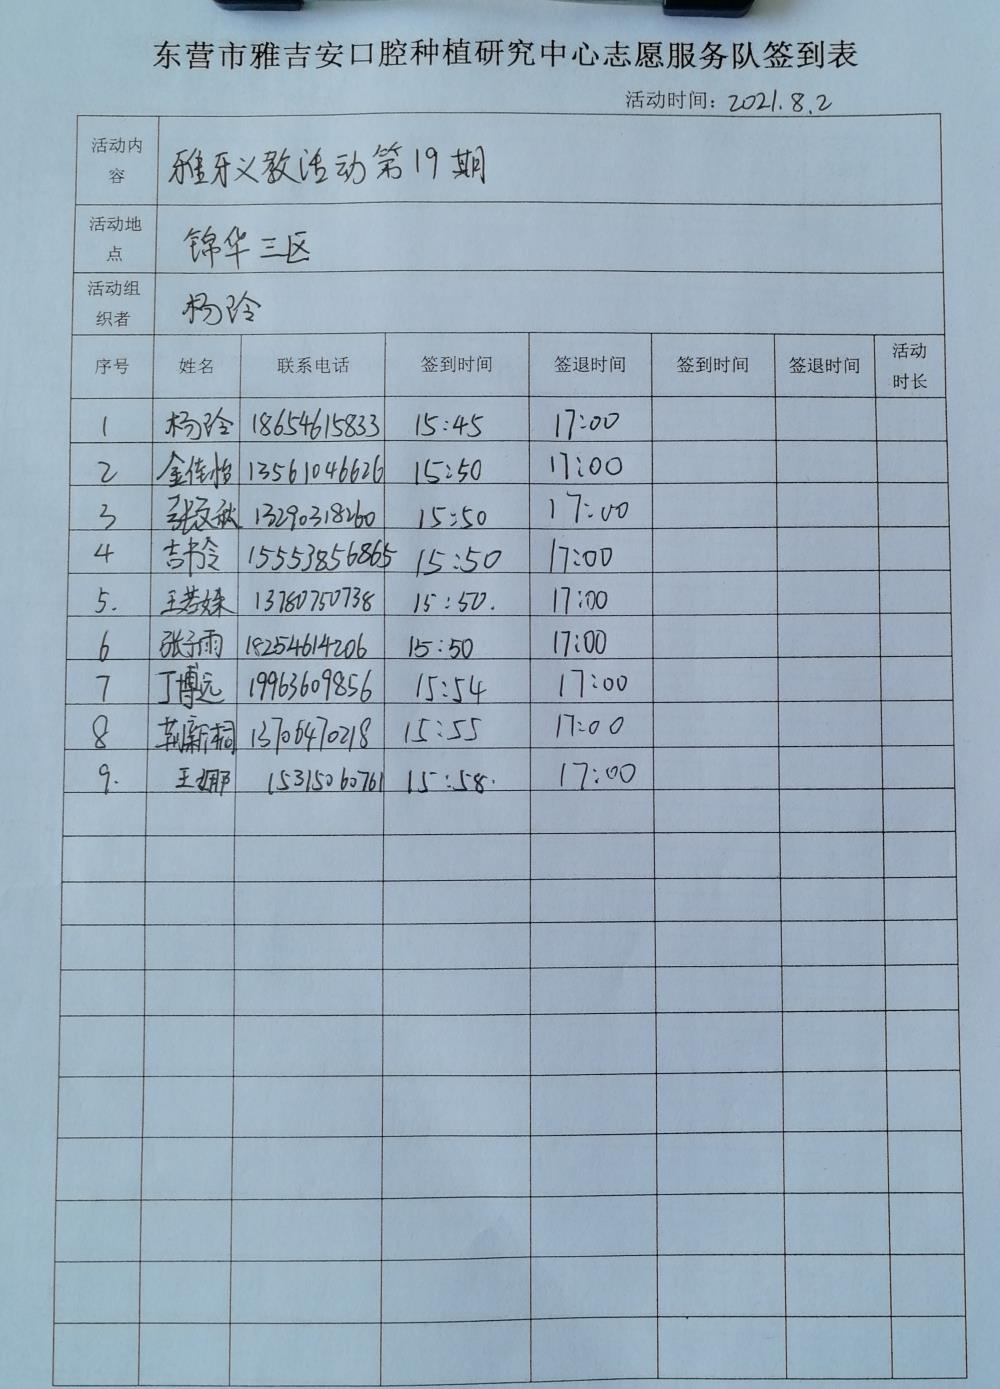 东营市雅吉安口腔种植研究中心志愿服务队签到表
活动时间：2021.8.2
活动内容 雅牙义教活动第19期
活动地点 锦华三区
活动组织者 杨玲
序号 姓名 联系电话 签到时间 签退时间 签到时间 签退时间 活动时长
1 杨玲 18654615833 15:45 17:00
2 金佳怡 13561046626 15:50 17:00
3 张文秋 13290318260 15:50 17:00
4 吉书令 15553856865 15:50 17:00
5. 王若妹 13780750738 15:50. 17:00
6 张子雨 18254614206 15:50 17:00
7 丁博远 19963609856 15:54 17:00
8 荆新桐 13706470218 15:55 17:00
9. 王娜 15315060761 15:58. 17:00